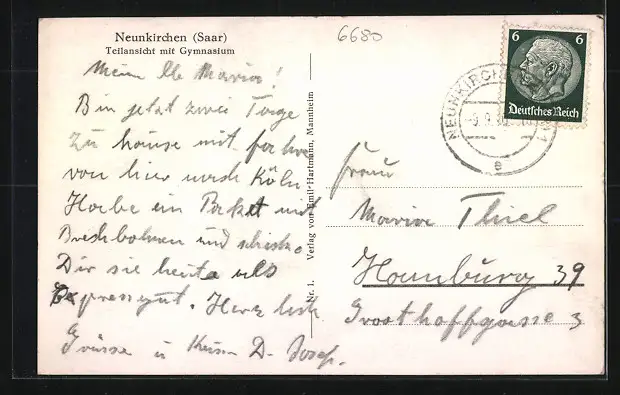 6680
Neunkirchen (Saar)
Teilansicht mit Gymnasium
Meine lb Maria!
Bin jetzt zwei Tage
zu hause mit fahre
von hier nach Köln
Habe ein Paket mit
Brechbohnen und schicke
Dir sie heute als
Expressgut. Herzlich
Grüsse u Küsse D. Josef.
Nr. 1. Verlag von Emil Hartmann, Mannheim
6 6
Deutsches Reich
NEUNKIRCHEN
e
Frau
Maria Thiel
Hamburg 39
Grosthoffgasse 3